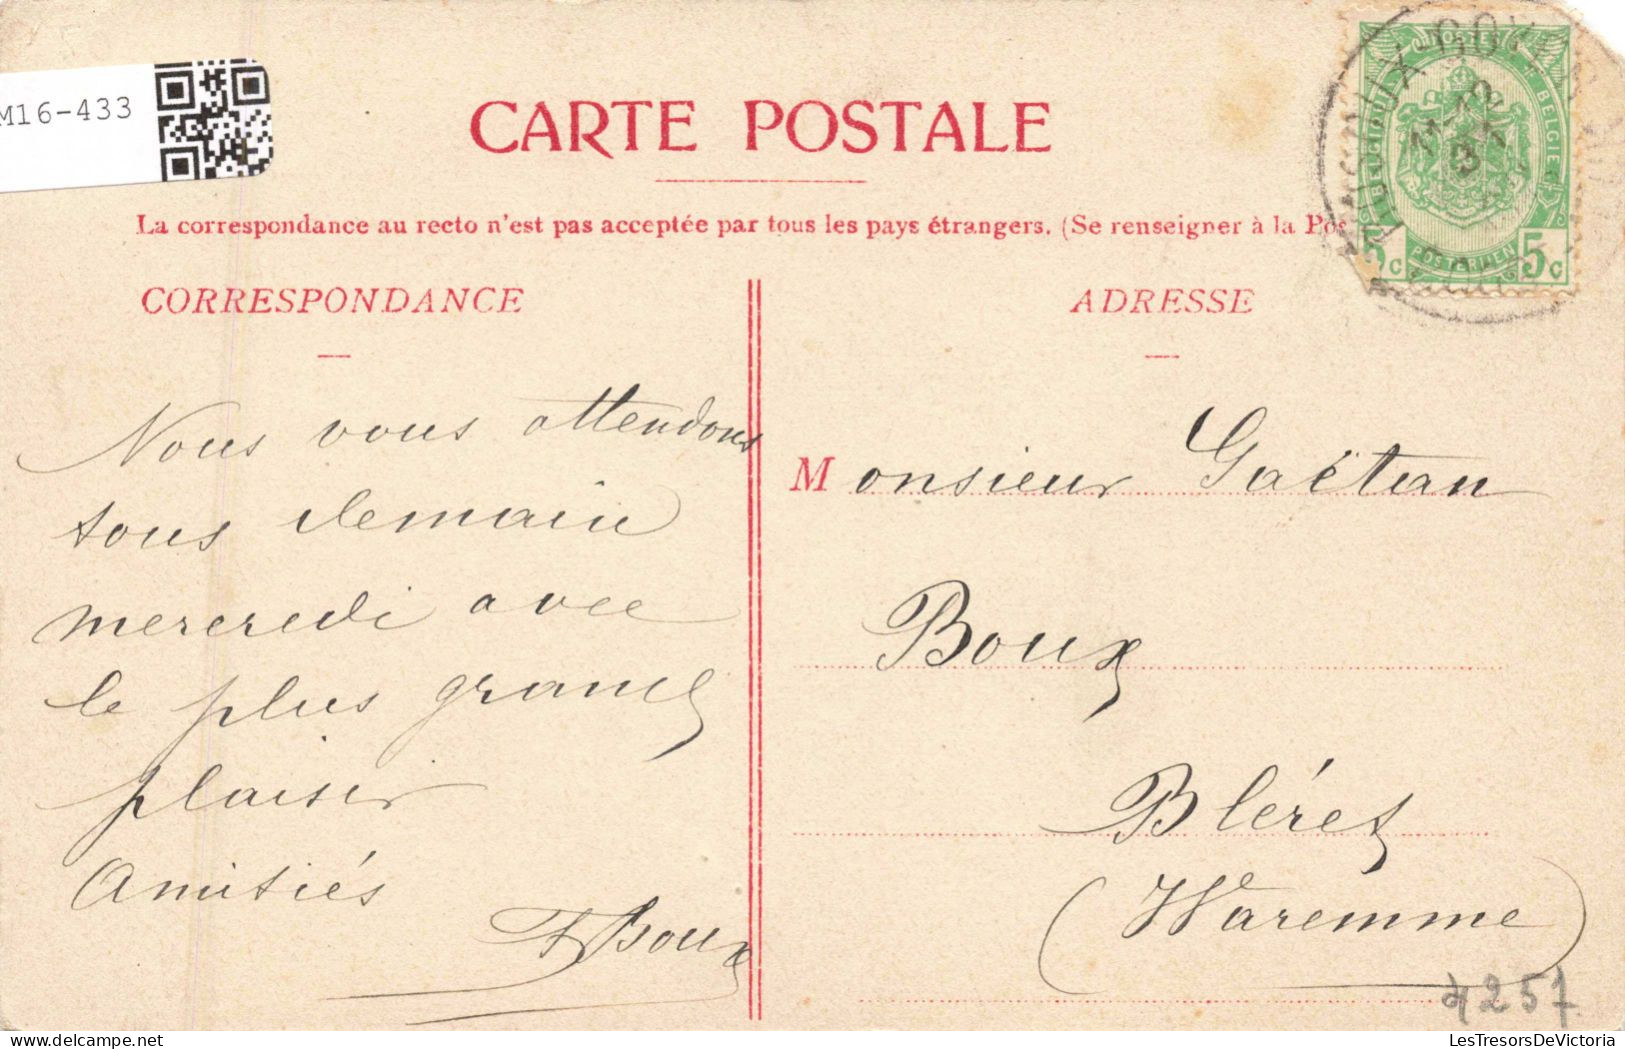 M16-433
CARTE POSTALE
La correspondance au recto n'est pas acceptée par tous les pays étrangers. (Se renseigner à la Pos
CORRESPONDANCE
Nous vous attendons
tous demain
mercredi avec
le plus grand
plaisir
Amitiés
F Boux
ADRESSE
Monsieur Gaëtan
Boux
Bléret
(Waremme)
4257
POSTES
BELGIE
POSTERIJEN
5c 5c
LesTresorsDeVictoria.com